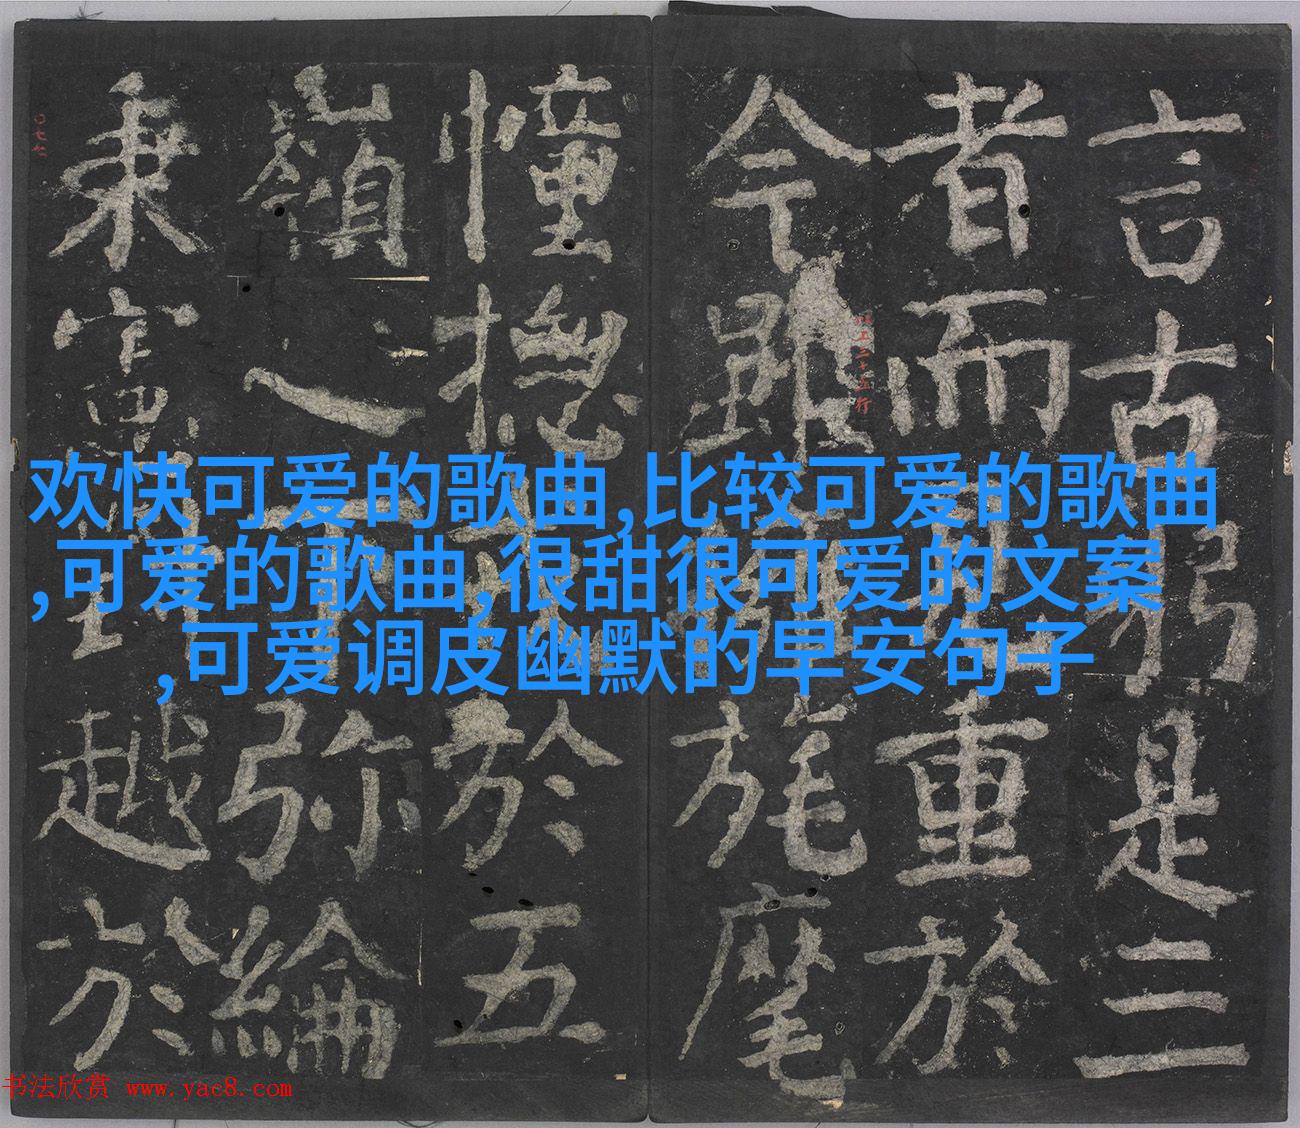 欢快可爱的歌曲,比较可爱的歌曲
,可爱的歌曲,很甜很可爱的文案
,可爱调皮幽默的早安句子
言古是三
者而重於
今雖旄麾
幢揔於五
嶺之下弥綸
秉憲越於
书法欣赏 www.yac8.com